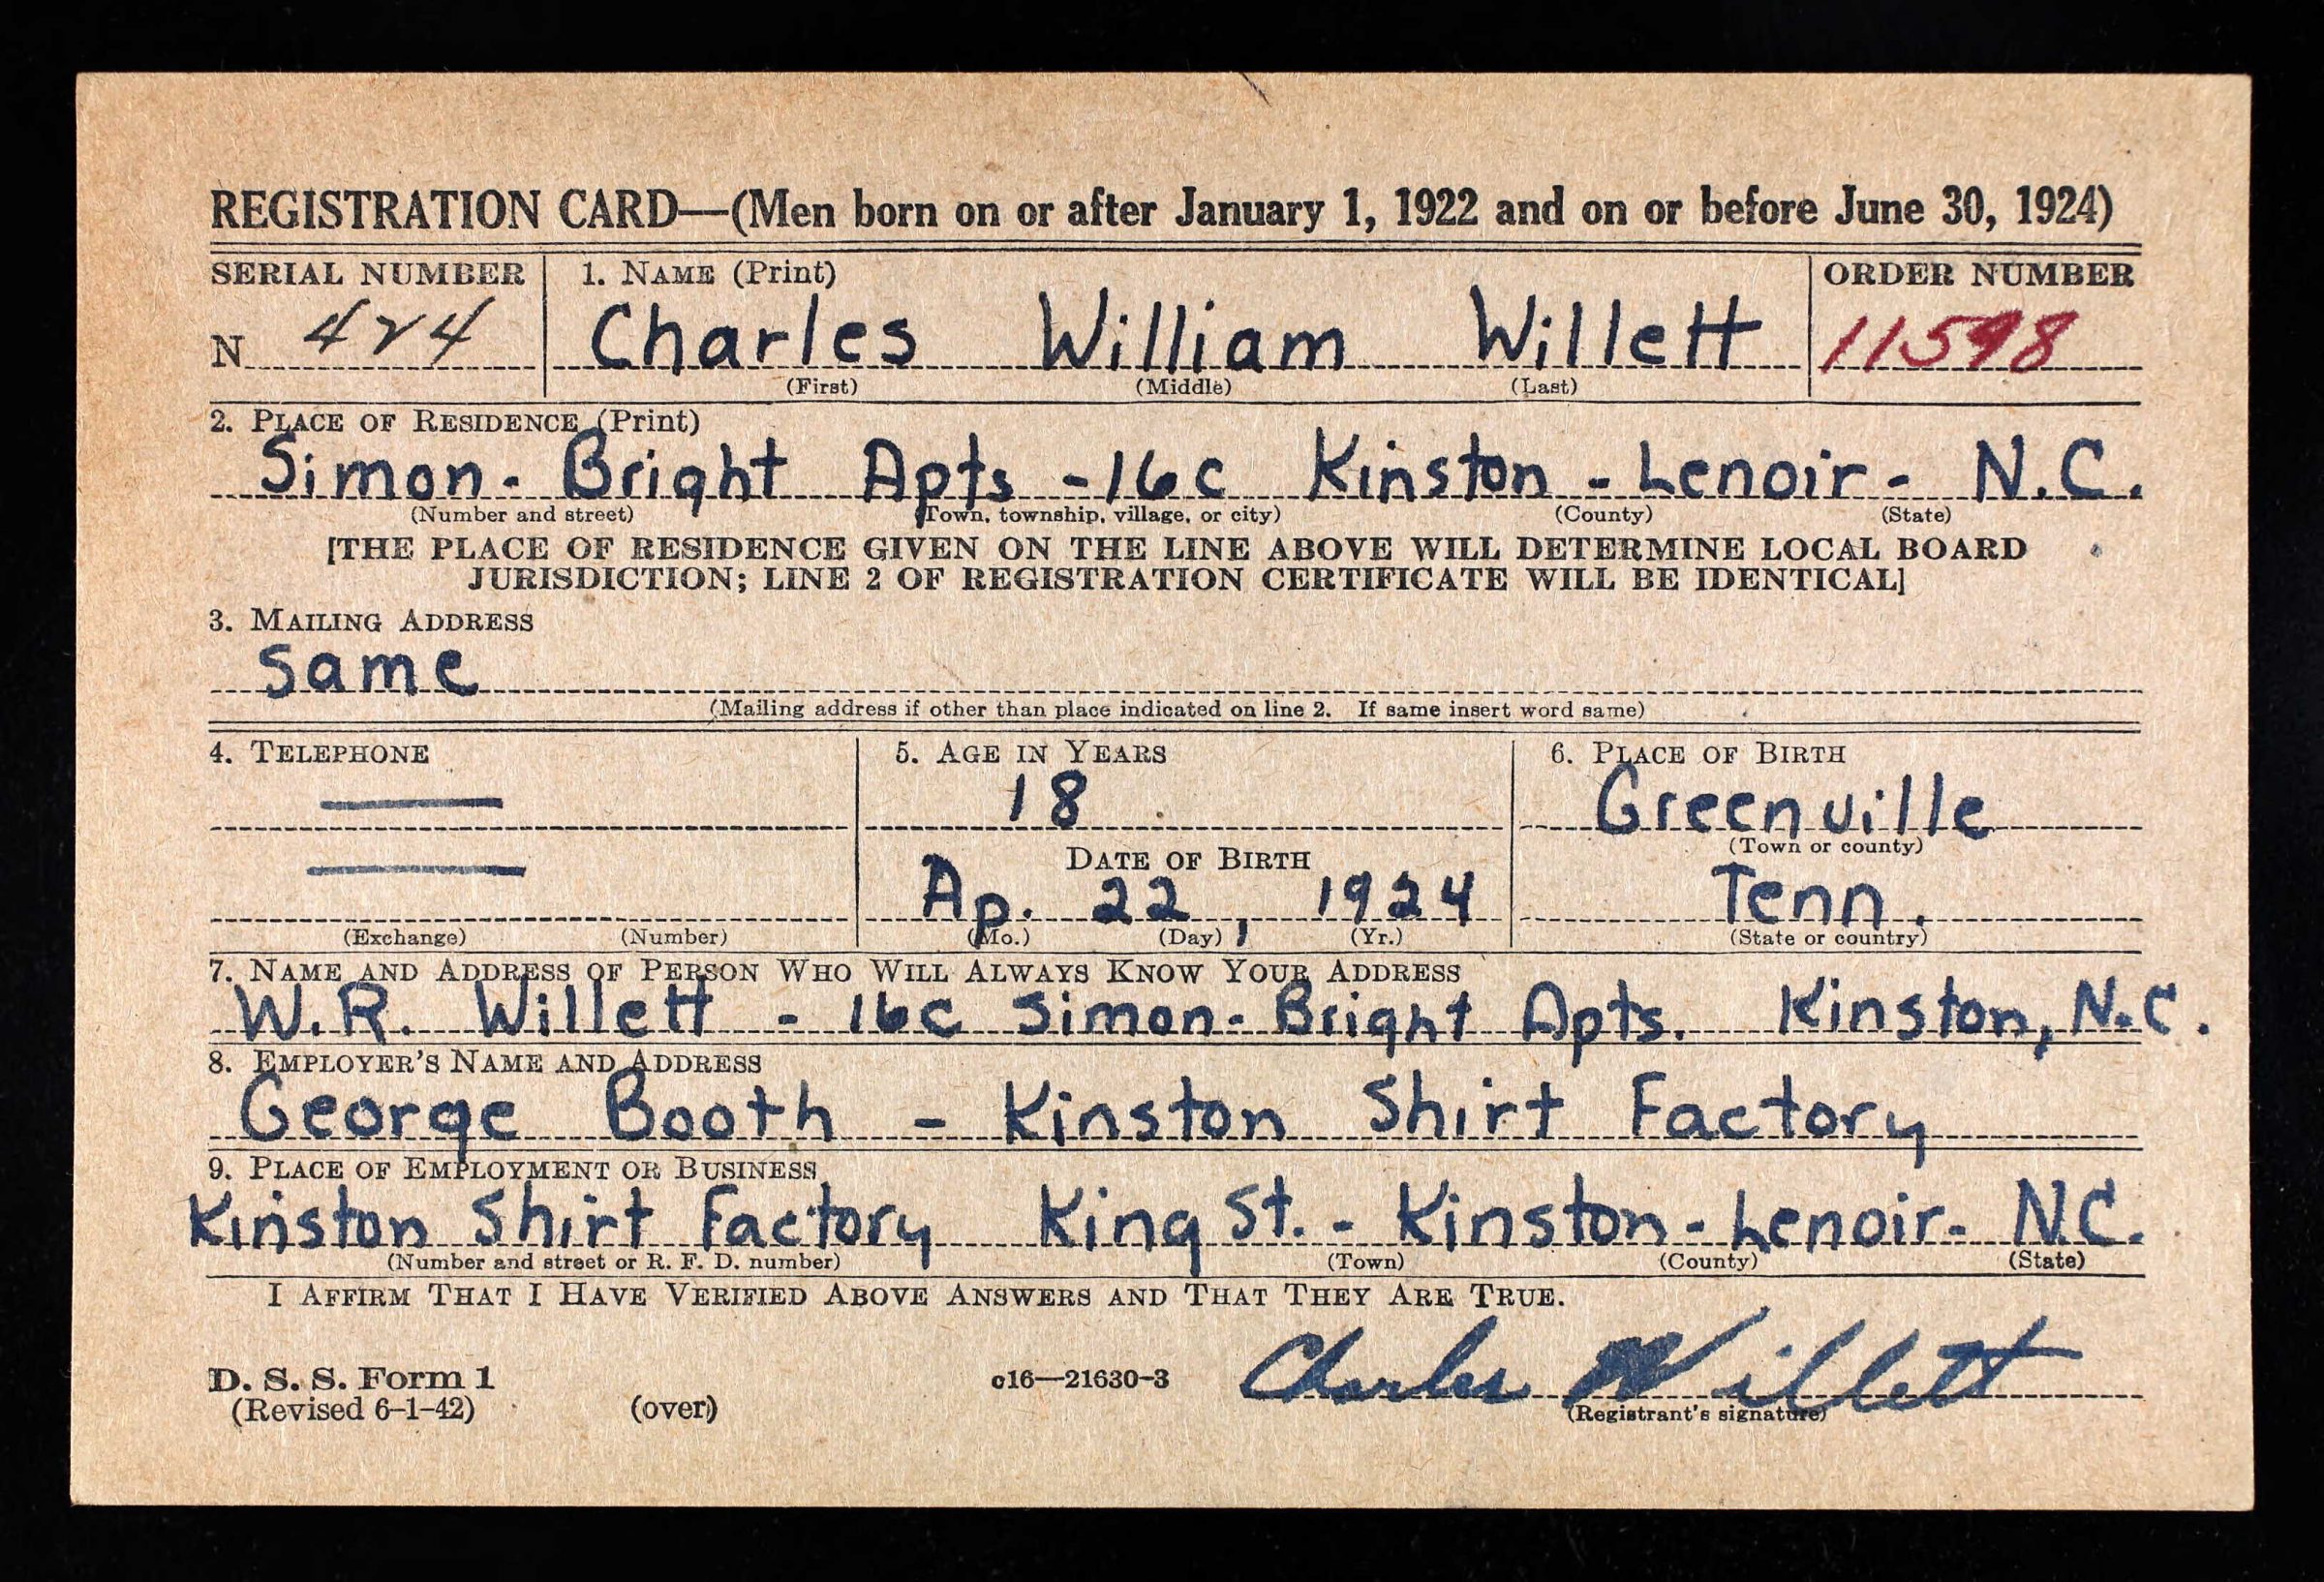 REGISTRATION CARD—(Men born on or after January 1, 1922 and on or before June 30, 1924)
SERIAL NUMBER 1. NAME (Print) ORDER NUMBER
N 424 Charles William Willett 11598
(First) (Middle) (Last)
2. PLACE OF RESIDENCE (Print)
Simon-Bright Apts -16c Kinston - Lenoir - N.C.
(Number and street) (Town, township, village, or city) (County) (State)
[THE PLACE OF RESIDENCE GIVEN ON THE LINE ABOVE WILL DETERMINE LOCAL BOARD
JURISDICTION; LINE 2 OF REGISTRATION CERTIFICATE WILL BE IDENTICAL]
3. MAILING ADDRESS
same
(Mailing address if other than place indicated on line 2. If same insert word same)
4. TELEPHONE 5. AGE IN YEARS 6. PLACE OF BIRTH
18 Greenville
DATE OF BIRTH (Town or county)
Ap. 22, 1924 Tenn.
(Exchange) (Number) (Mo.) (Day) (Yr.) (State or country)
7. NAME AND ADDRESS OF PERSON WHO WILL ALWAYS KNOW YOUR ADDRESS
W.R. Willett - 16c Simon-Bright Apts. Kinston, N.C.
8. EMPLOYER'S NAME AND ADDRESS
George Booth - Kinston Shirt Factory
9. PLACE OF EMPLOYMENT OR BUSINESS
Kinston Shirt Factory King St. - Kinston - Lenoir - N.C.
(Number and street or R. F. D. number) (Town) (County) (State)
I AFFIRM THAT I HAVE VERIFIED ABOVE ANSWERS AND THAT THEY ARE TRUE.
D. S. S. Form 1 c16—21630-3 Charles Willett
(Revised 6-1-42) (over) (Registrant's signature)